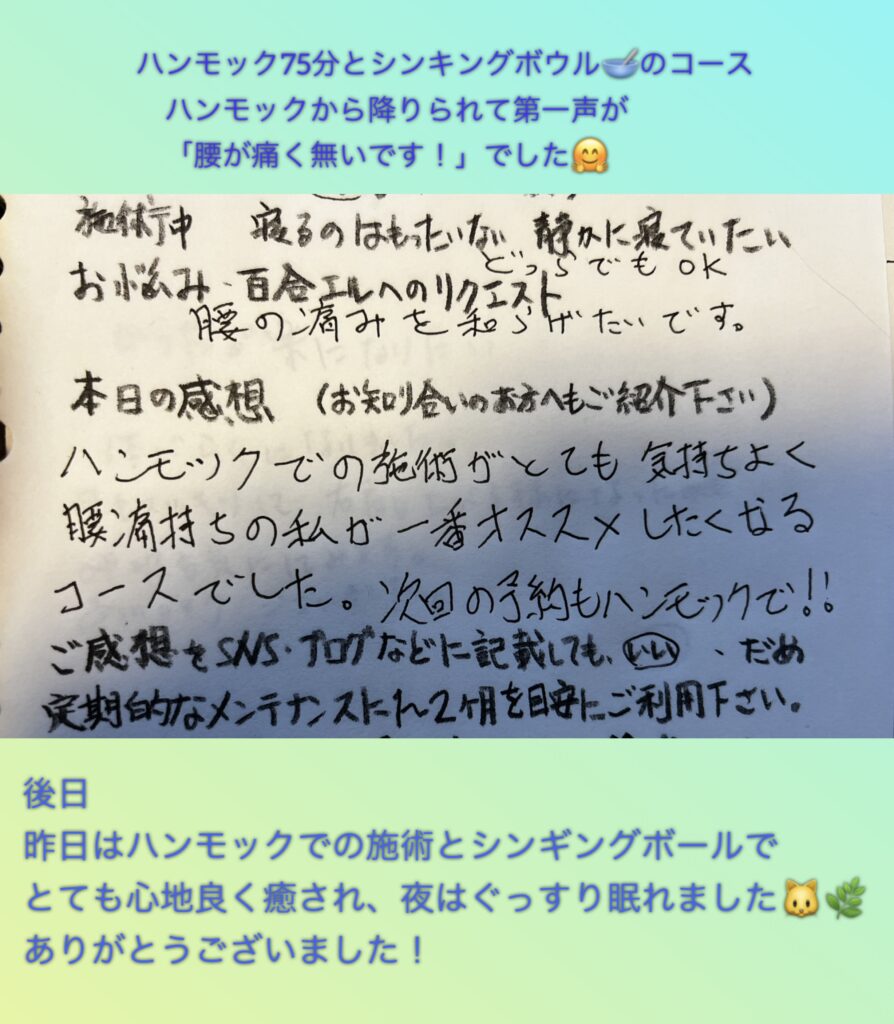 ハンモック75分とシンキングボウル🥣のコース
ハンモックから降りられて第一声が
「腰が痛く無いです！」でした🤗
施術中 寝るのはもったいない 静かに寝ていたい
どっちでも OK
お悩み・百合エルへのリクエスト
腰の痛みを和らげたいです。
本日の感想 (お知り合いのお方へもご紹介下さい)
ハンモックでの施術がとても気持ちよく
腰痛持ちの私が一番オススメしたくなる
コースでした。次回の予約もハンモックで!!
ご感想をSNS・ブログなどに記載しても、いい ・だめ
定期的なメンテナンスに1〜2ヶ月を目安にご利用下さい。
後日
昨日はハンモックでの施術とシンギングボールで
とても心地良く癒され、夜はぐっすり眠れました🐱🌿
ありがとうございました！